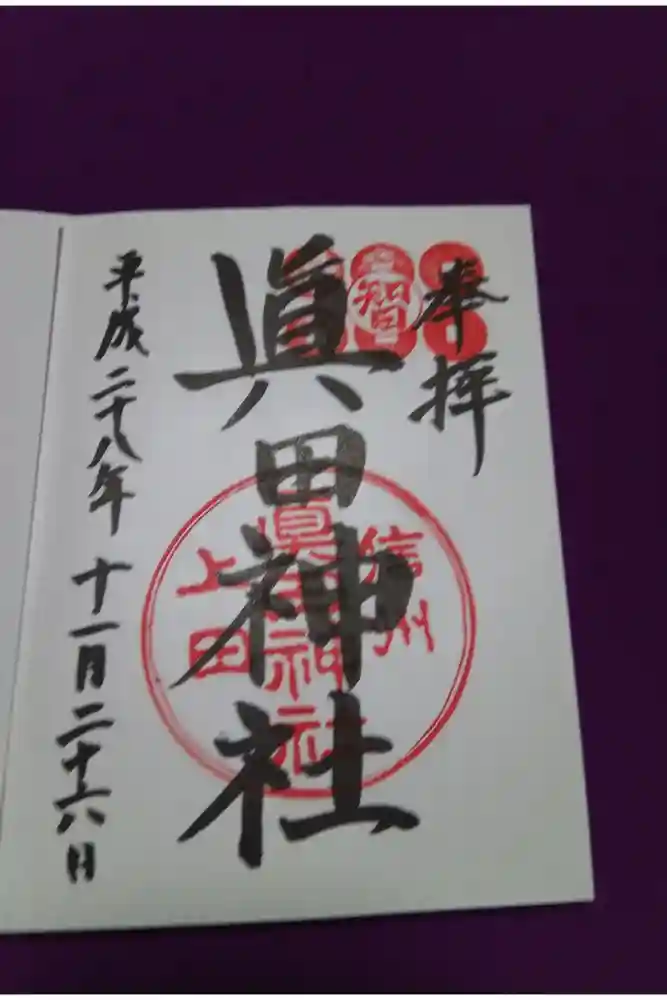 奉拝
眞田神社
信州
眞田神社
上田
平成二十八年十一月二十六日